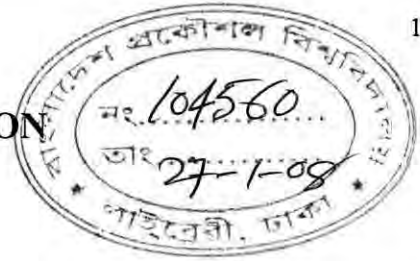 1
ON
বাংলাদেশ প্রকৌশল বিশ্ববিদ্যালয়
নং 104560
তাং 27-1-08
* লাইব্রেরী, ঢাকা *